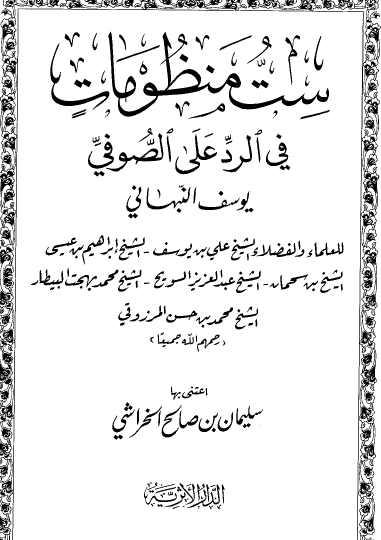 ستُّ منظُومَاتٍ
في الردِّ عَلى الصُّوفيِّ
يوسف النبهاني
للعلماء والفضلاء الشيخ علي بن يوسف - الشيخ إبراهيم بن عيسى
الشيخ بن سحمان - الشيخ عبد العزيز السويح - الشيخ محمد بهجت البيطار
الشيخ محمد بن حسن المرزوقي
(رحمهم الله جميعًا)
اعتنى بها
سليمان بن صالح الخراشي
الدار الأثرية